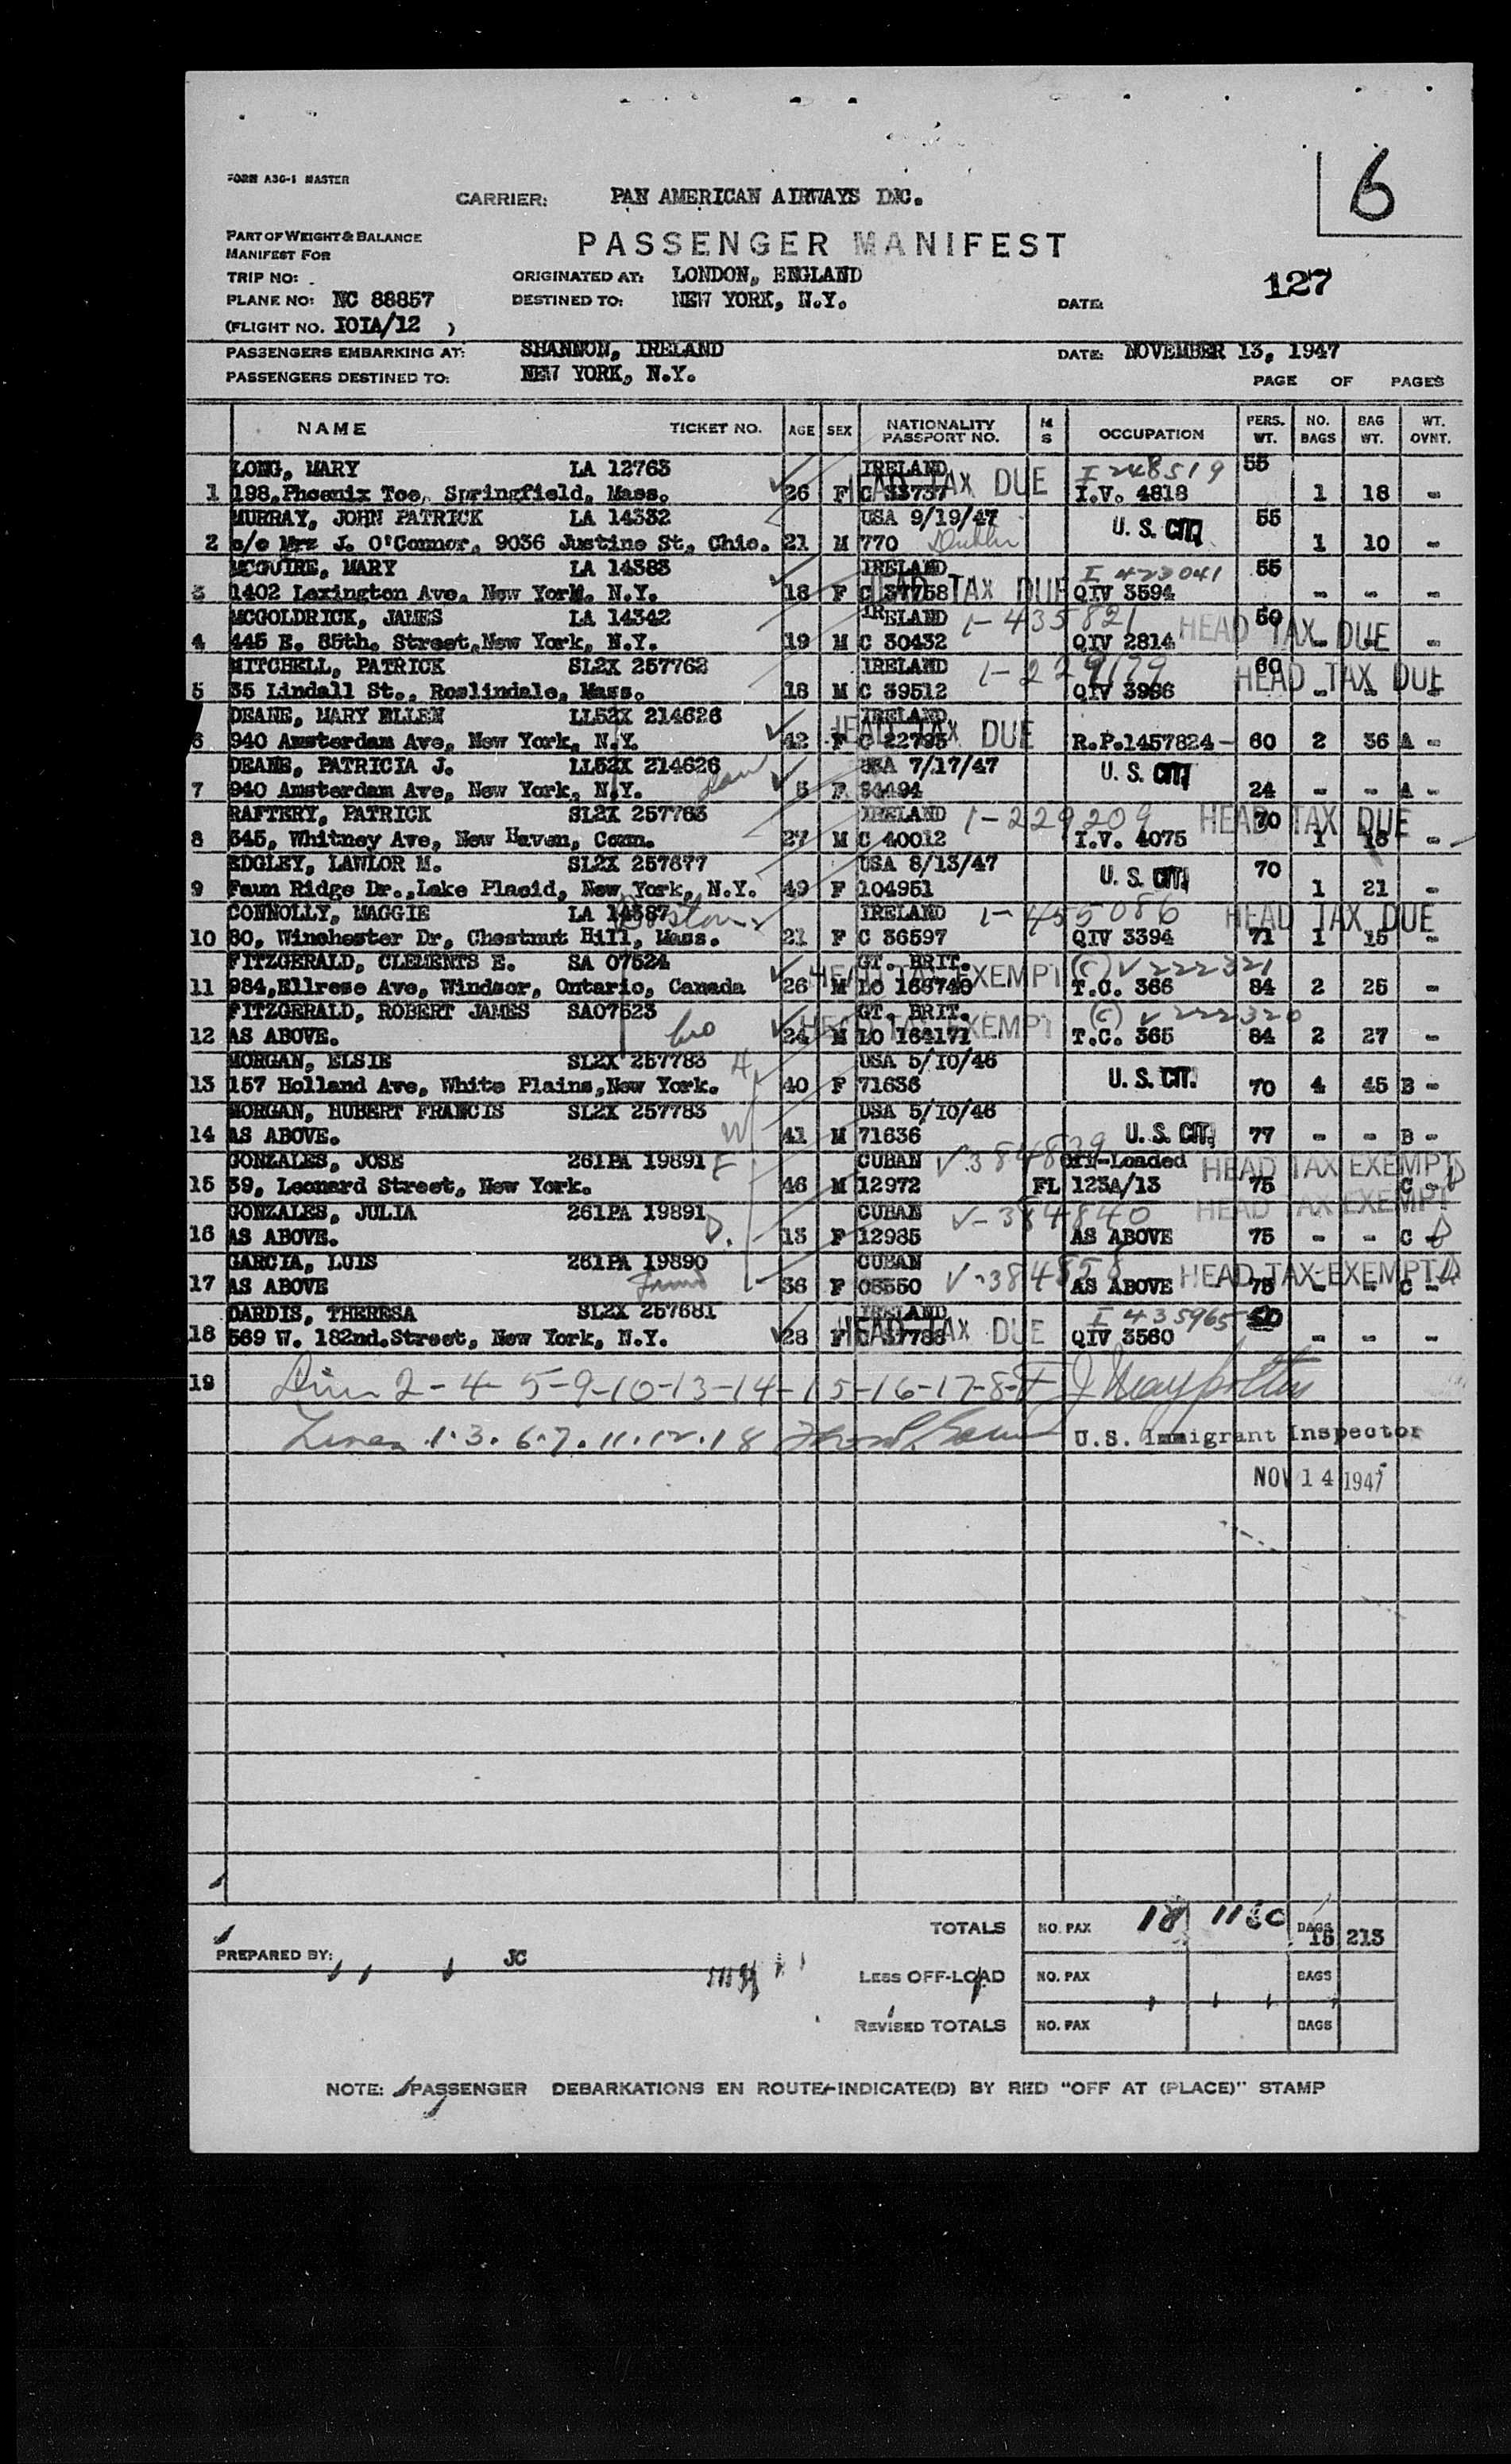 6
FORM A3G-1 MASTER
CARRIER: PAN AMERICAN AIRWAYS INC.
PART OF WEIGHT & BALANCE
PASSENGER MANIFEST
MANIFEST FOR
TRIP NO:
ORIGINATED AT: LONDON, ENGLAND
127
PLANE NO: NC 88857
DESTINED TO: NEW YORK, N.Y.
DATE:
(FLIGHT NO. IOIA/12 )
PASSENGERS EMBARKING AT: SHANNON, IRELAND
DATE: NOVEMBER 13, 1947
PASSENGERS DESTINED TO: NEW YORK, N.Y.
PAGE OF PAGES
NAME TICKET NO. AGE SEX NATIONALITY PASSPORT NO. M S OCCUPATION PERS. WT. NO. BAGS BAG WT. WT. OVNT.
LONG, MARY LA 12763 IRELAND I 248519 55
1 198,Phoenix Tce, Springfield, Mass. 26 F C 33737 HEAD TAX DUE I.V. 4818 1 18 -
MURRAY, JOHN PATRICK LA 14332 USA 9/19/47 U. S. CIT. 55
2 c/o Mrs J. O'Connor, 9036 Justine St, Chic. 21 M 770 Dublin 1 10 -
MCGUIRE, MARY LA 14383 IRELAND I 423041 55
3 1402 Lexington Ave, New York. N.Y. 18 F C 37758 HEAD TAX DUE QIV 3594 - - -
MCGOLDRICK, JAMES LA 14342 IRELAND 1-435821 50
4 445 E. 85th. Street,New York, N.Y. 19 M C 30432 QIV 2814 HEAD TAX DUE - - -
MITCHELL, PATRICK SL2X 257762 IRELAND 1-229179 60
5 35 Lindall St., Roslindale, Mass. 18 M C 39512 QIV 3996 HEAD TAX DUE - - -
DEANE, MARY ELLEN LL52X 214626 IRELAND
6 940 Amsterdam Ave, New York, N.Y. 42 F C 22795 HEAD TAX DUE R.P.1457824- 60 2 36 A -
DEANE, PATRICIA J. LL52X 214626 USA 7/17/47 U. S. CIT.
7 940 Amsterdam Ave, New York, N.Y. 5 F 84494 24 - - A -
RAFTERY, PATRICK SL2X 257763 IRELAND 1-229209 HEAD TAX DUE 70
8 345, Whitney Ave, New Haven, Conn. 27 M C 40012 I.V. 4075 1 16 -
EDGLEY, LAWLOR M. SL2X 257677 USA 8/13/47 U. S. CIT. 70
9 Faun Ridge Dr.,Lake Placid, New York, N.Y. 49 F 104951 1 21 -
CONNOLLY, MAGGIE LA 14387 Boston IRELAND 1-455086 HEAD TAX DUE
10 80, Winchester Dr, Chestnut Hill, Mass. 21 F C 36597 QIV 3394 71 1 15 -
FITZGERALD, CLEMENTS E. SA 07524 GT. BRIT. HEAD TAX EXEMPT (C) V 222321
11 984,Ellrese Ave, Windsor, Ontario, Canada 26 M LO 166740 T.C. 366 84 2 25 -
FITZGERALD, ROBERT JAMES SA07523 GT. BRIT. HEAD TAX EXEMPT (C) V 222320
12 AS ABOVE. 24 M LO 164171 T.C. 365 84 2 27 -
MORGAN, ELSIE SL2X 257783 H USA 5/10/46 U. S. CIT.
13 157 Holland Ave, White Plains,New York. 40 F 71636 70 4 45 B -
MORGAN, HUBERT FRANCIS SL2X 257783 W USA 5/10/46 U. S. CIT.
14 AS ABOVE. 41 M 71636 77 - - B -
GONZALES, JOSE 261PA 19891 F CUBAN V 384839 Off-Loaded HEAD TAX EXEMPT
15 39, Leonard Street, New York. 46 M 12972 FL 123A/13 75 C - D
GONZALES, JULIA 261PA 19891 D. CUBAN V-384840 HEAD TAX EXEMPT
16 AS ABOVE. 13 F 12985 AS ABOVE 75 - - C - D
GARCIA, LUIS 261PA 19890 CUBAN V-384858 HEAD TAX EXEMPT
17 AS ABOVE Friend 36 F 08550 AS ABOVE 75 - - C -
DARDIS, THERESA SL2X 257681 IRELAND I 435965 50
18 569 W. 182nd.Street, New York, N.Y. 28 F C 37788 HEAD TAX DUE QIV 3560 - - -
19 2-4-5-9-10-13-14-15-16-17-8
Lines 1.3.6.7.11.12.18 U.S. Immigrant Inspector
NOV 14 1947
TOTALS NO. PAX 18 1180 BAGS 15 213
PREPARED BY: JC
LESS OFF-LOAD NO. PAX BAGS
REVISED TOTALS NO. PAX BAGS
NOTE: PASSENGER DEBARKATIONS EN ROUTE-INDICATE(D) BY RED "OFF AT (PLACE)" STAMP